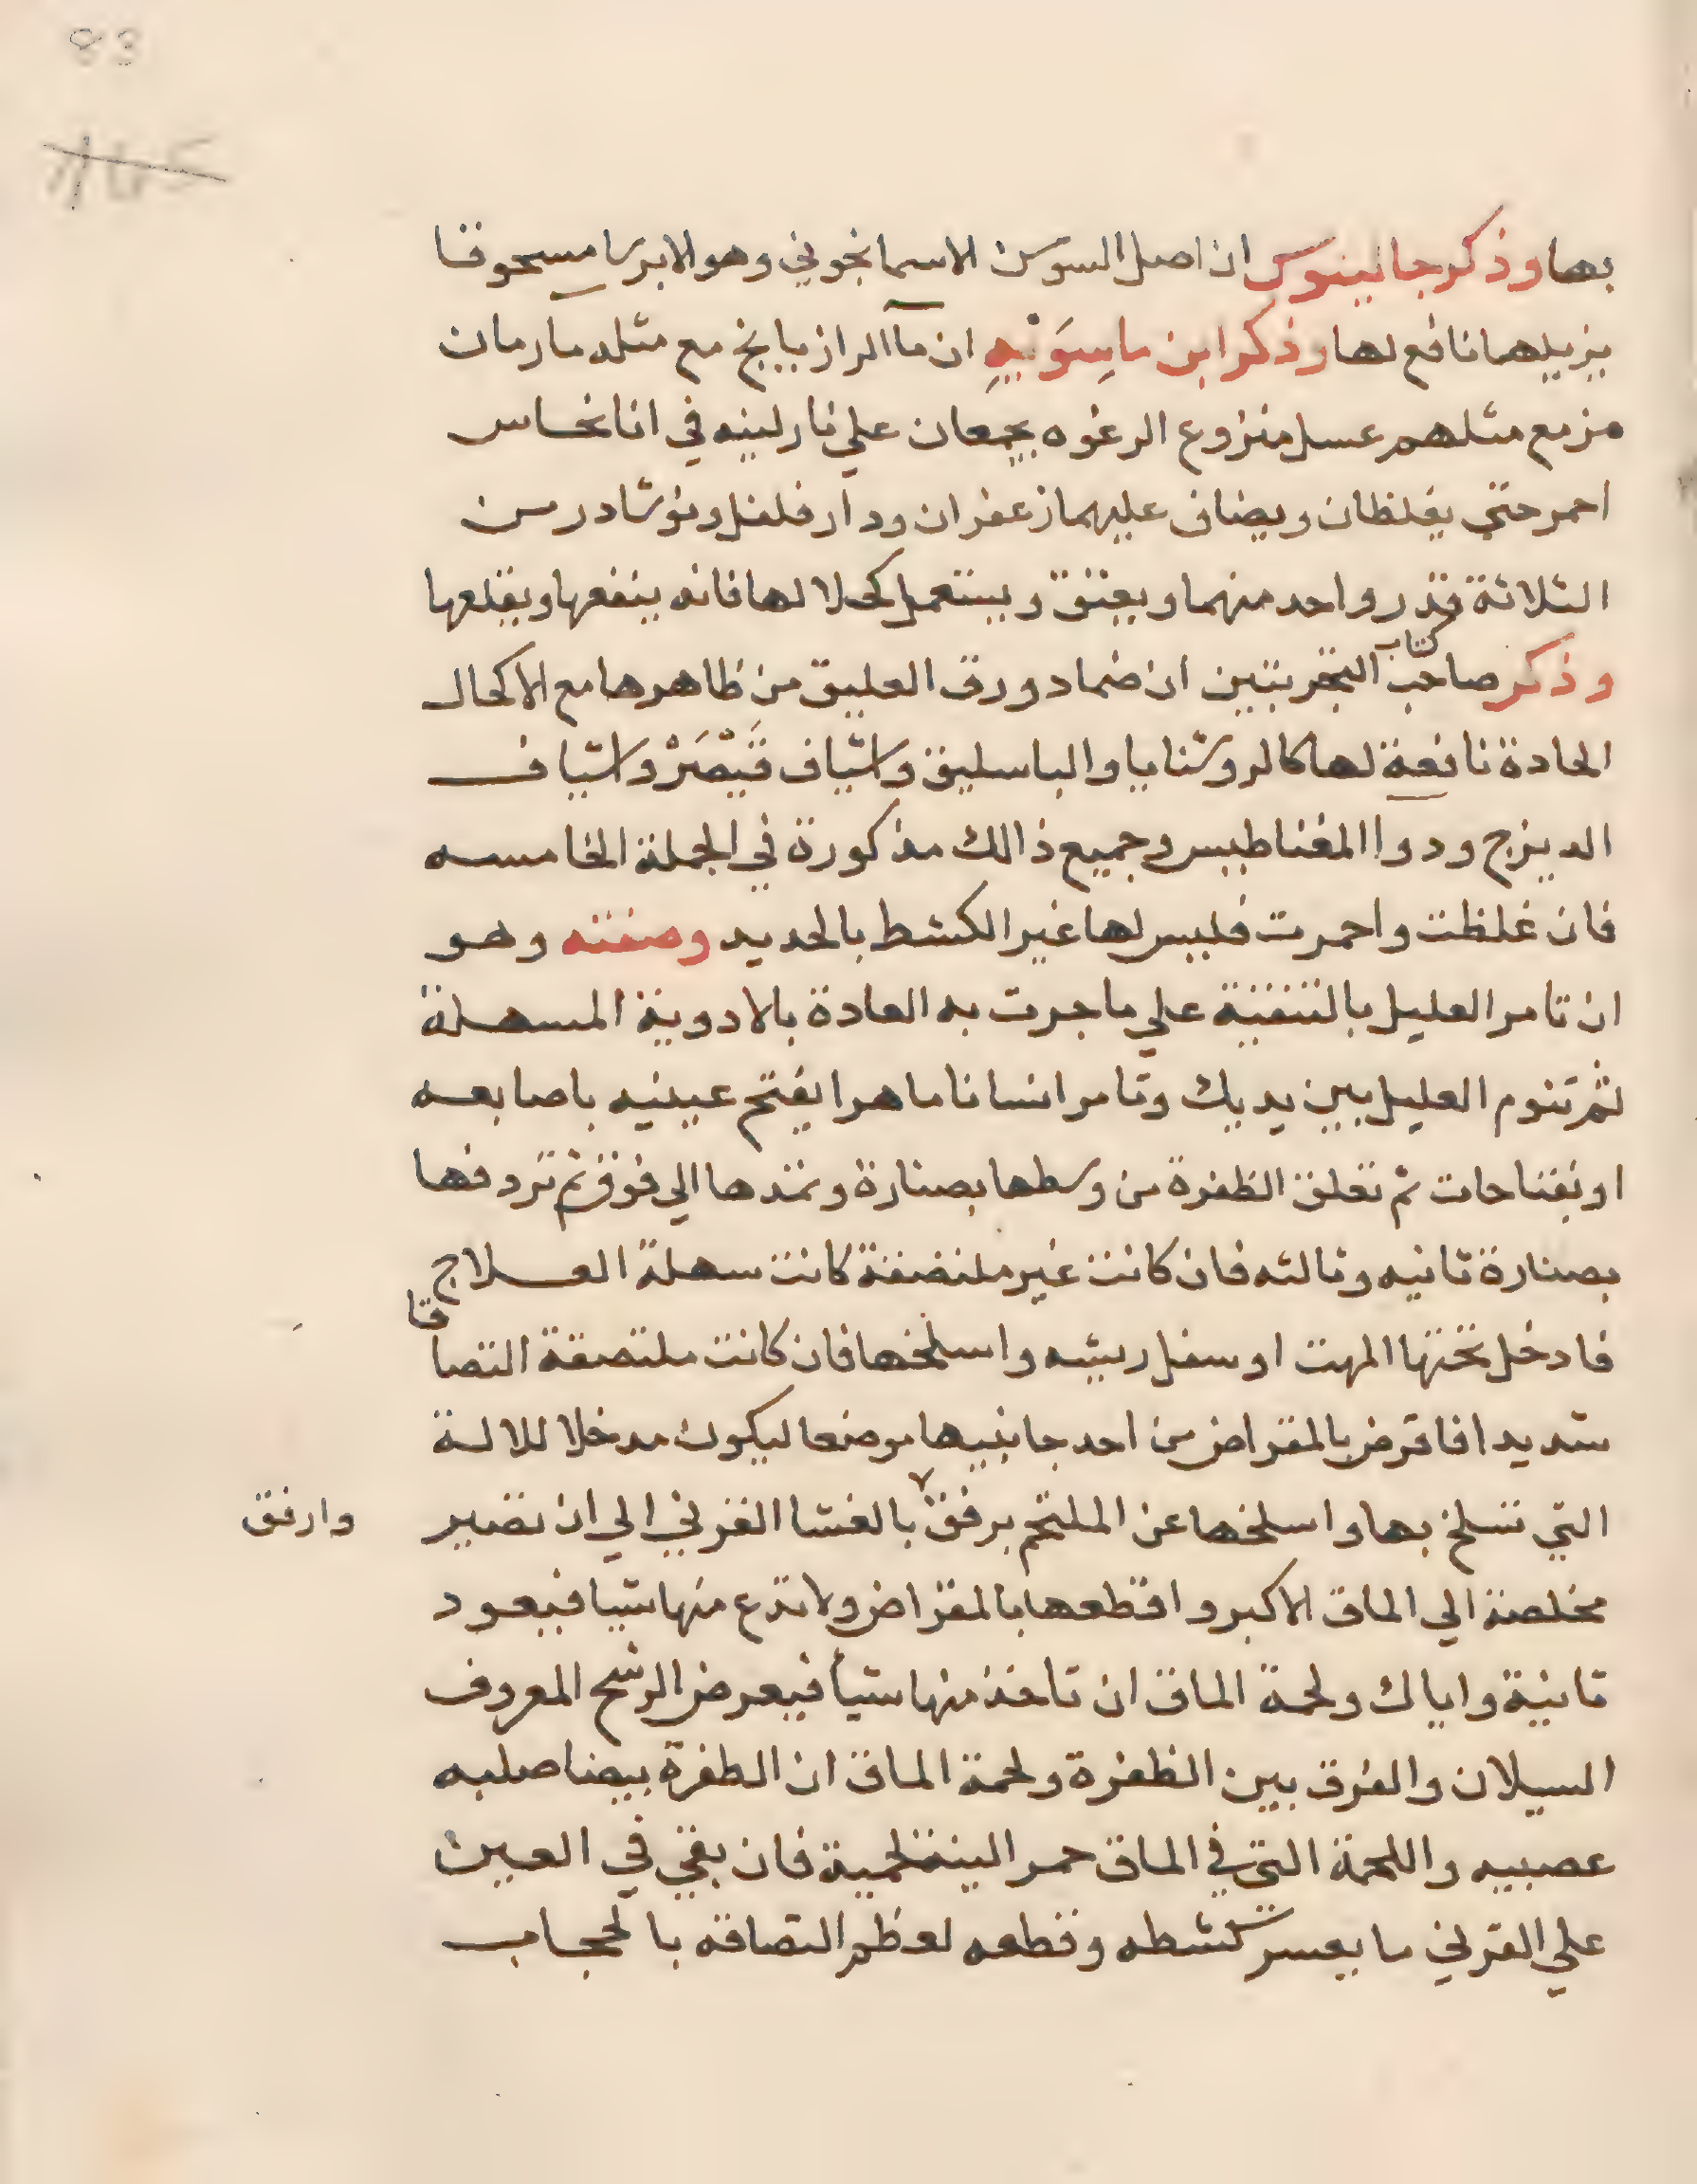 83
بها وذكر جالينوس ان اصل السوسن الاسمانجوني وهو الايرسا مسحوقا
يزيلها نافع لها وذكر ابن ماسويه ان ما الرازيانج مع مثله ما رمان
مز مع مثلهم عسل منزوع الرغوه يجمعان علي نار لينه في انا نحاس
احمر حتي يغلظان ويضاف عليهما زعفران ودار فلفل ونوشادر من
الثلاثة قدر واحد منهما ويعتق ويستعمل كحلا لها فانه ينفعها ويقلعها
وذكر صاحب كتاب التجربتين ان ضماد ورق العليق من ظاهرها مع الاكحال
الحادة نافعة لها كالروشنايا والباسليق واشياف قَيْصَرْ واشياف
الديزج ودوا المغناطيس وجميع ذالك مذكورة في الجملة الخامسه
فان غلظت واحمرت فليس لها غير الكشط بالحديد وصفته وهو
ان تامر العليل بالتنقية علي ما جرت به العادة بالادوية المسهلة
ثم تنوم العليل بين يديك وتامر انسانا ماهرا يفتح عينيه باصابعه
او بفتاحات ثم تعلق الظفرة من وسطها بصنارة وتمدها الي فوق ثم تردفها
بصنارة ثانيه وثالثه فان كانت غير ملتصقة كانت سهلة العلاج
فادخل تحتها المهت او سفل ريشه واسلخها فان كانت ملتصقة التصاقا
شديدا فاقرض بالمقراض من احد جانبيها موضعا ليكون مدخلا للالة
التي تسلخ بها واسلخها عن الملتحم برفق بالغشا القرني الي ان تصير
وارفق
مخلصة الي الماق الاكبر واقطعها بالمقراض ولا تدع منها شيا فيعود
ثانية واياك ولحمة الماق ان تاخذ منها شيأ فيعرض الرشح المعروف
السيلان والفرق بين الظفرة ولحمة الماق ان الظفرة بيضا صلبه
عصبيه واللحمة التي في الماق حمرا لينة لحمية فان بقي في العين
علي القرني ما يعسر كشطه وقطعه لعظم التصاقه بالحجاب